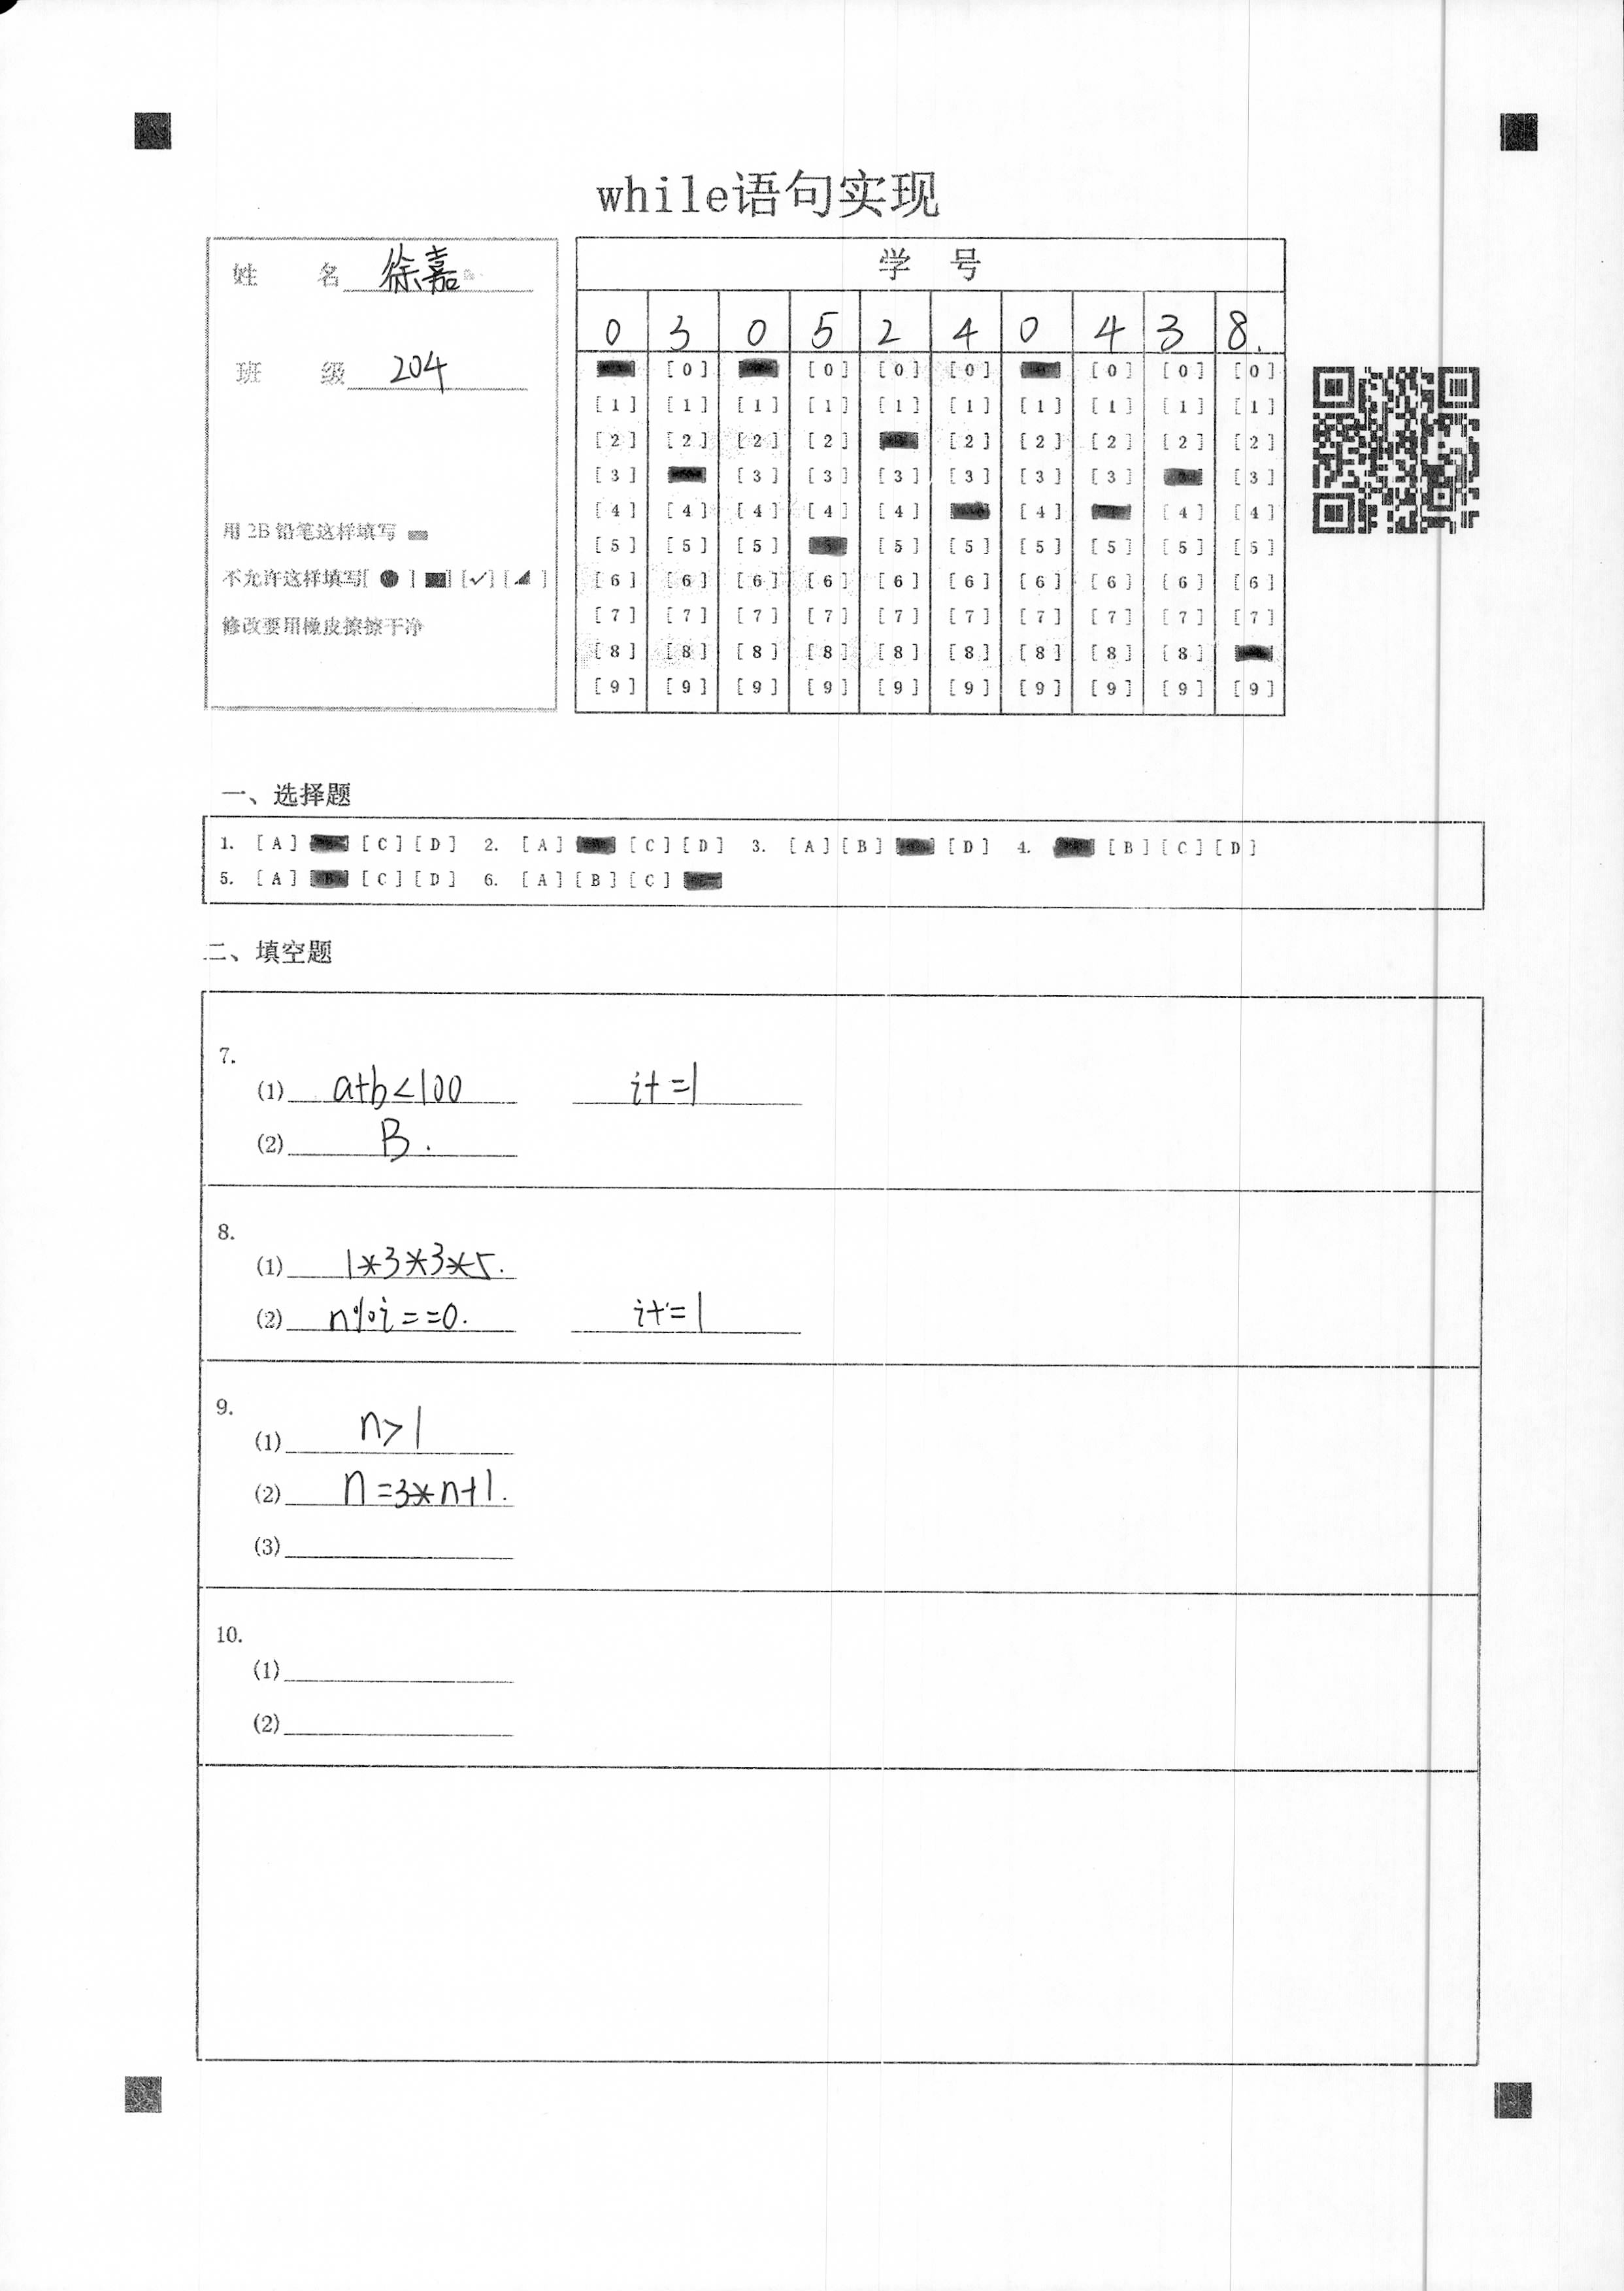 while语句实现
姓 名 徐嘉
班 级 204
用 2B 铅笔这样填写
不允许这样填写[ ● ] ■] [✓] [◢ ]
修改要用橡皮擦擦干净
学 号
0 3 0 5 2 4 0 4 3 8.
[0] [0] [0] [0] [0] [0] [0]
[1] [1] [1] [1] [1] [1] [1] [1] [1] [1]
[2] [2] [2] [2] [2] [2] [2] [2] [2]
[3] [3] [3] [3] [3] [3] [3] [3]
[4] [4] [4] [4] [4] [4] [4] [4]
[5] [5] [5] [5] [5] [5] [5] [5] [5]
[6] [6] [6] [6] [6] [6] [6] [6] [6] [6]
[7] [7] [7] [7] [7] [7] [7] [7] [7] [7]
[8] [8] [8] [8] [8] [8] [8] [8] [8]
[9] [9] [9] [9] [9] [9] [9] [9] [9] [9]
一、选择题
1. [A] [C] [D] 2. [A] [C] [D] 3. [A] [B] [D] 4. [B] [C] [D]
5. [A] [B] [C] [D] 6. [A] [B] [C]
二、填空题
7.
(1) a+b<100 i+=1
(2) B.
8.
(1) 1*3*3*5.
(2) n%i==0. i+=1
9.
(1) n>1
(2) n=3*n+1.
(3)
10.
(1)
(2)